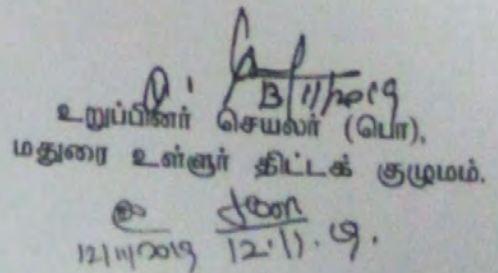 13/11/2019
உறுப்பினர் செயலர் (பொ),
மதுரை உள்ளூர் திட்டக் குழுமம்.
12/11/2019 12.11.19.